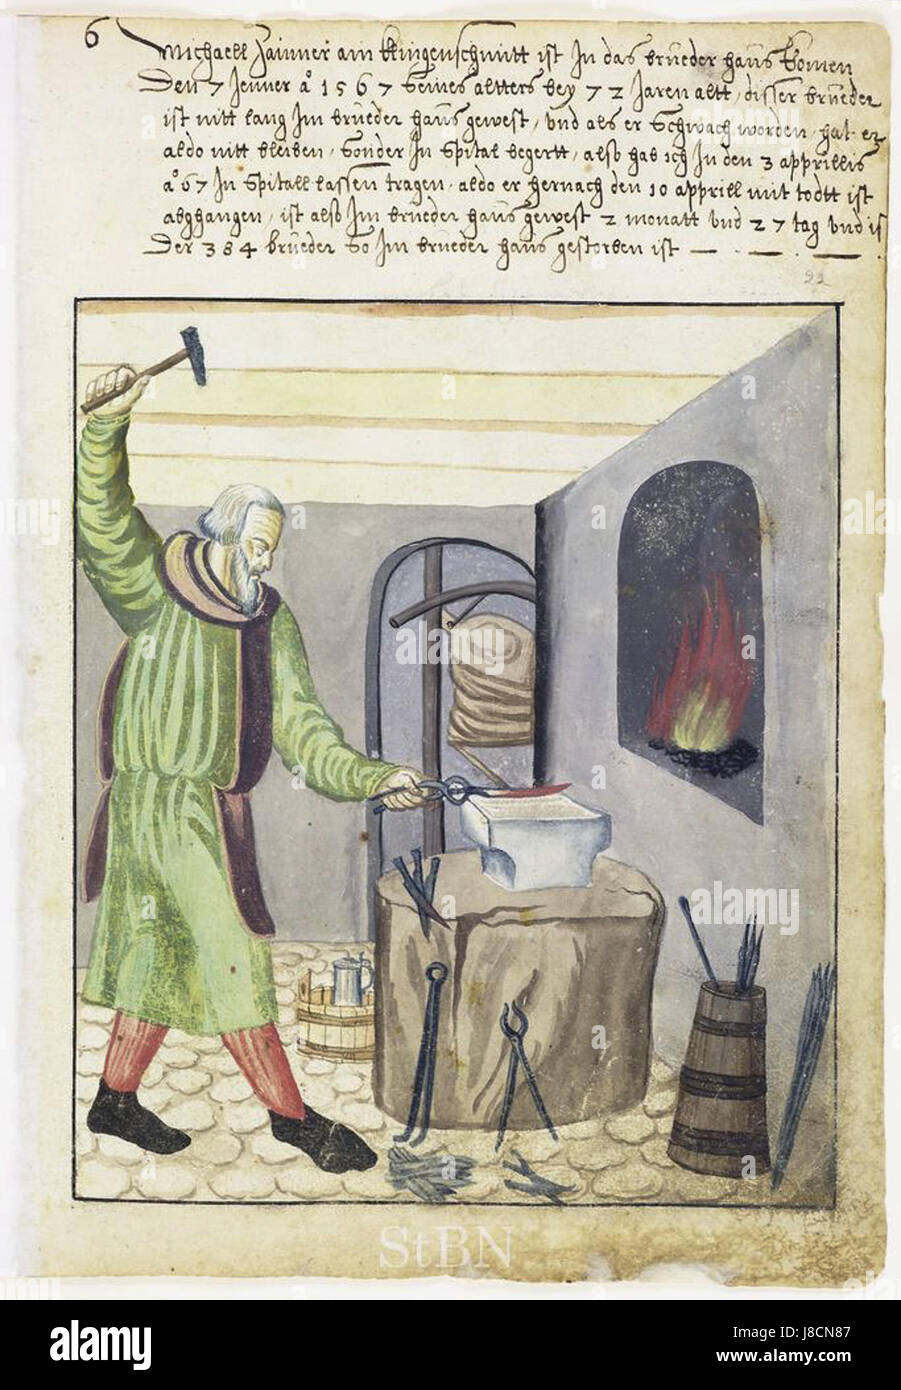 6
Michaell Zainner ain klingenschmitt ist In das brueder haus komen
Den 7 Jenner a° 1567 seines altters bey 72 Jaren altt, disser brueder
ist nitt lang Im brueder haus gewest, und als er schwach worden, hat er
aldo nitt bleiben, sonder In spital begertt, also hab ich In den 3 apprillis
a° 67 In spitall lassen tragen, aldo er hernach den 10 apprill mit todtt ist
abghangen, ist also Im brueder haus gewest 2 monatt und 27 tag und is
Der 384 brueder so Im brueder haus gestorben ist
92
StBN
alamy stock photo
J8CN87
www.alamy.com